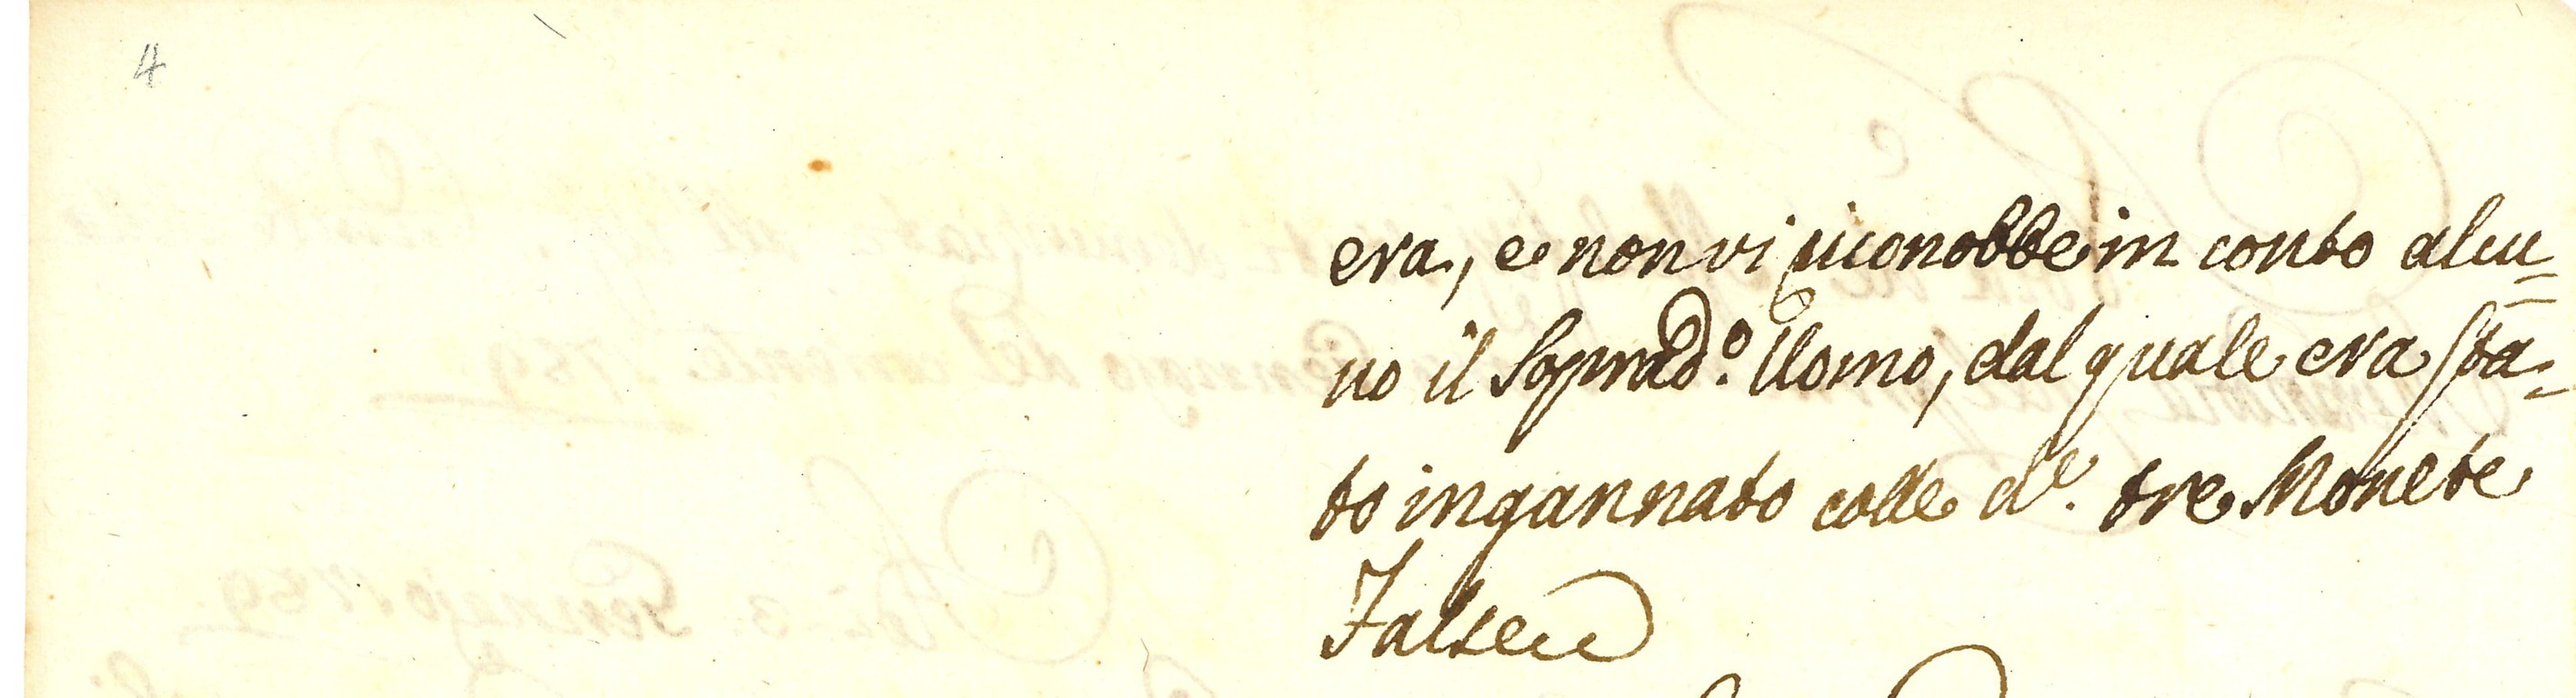 4
era, e non vi riconobbe in conto alcu=
no il Soprad.º Uomo, dal quale era sta=
to ingannato colle d.e tre Monete
False